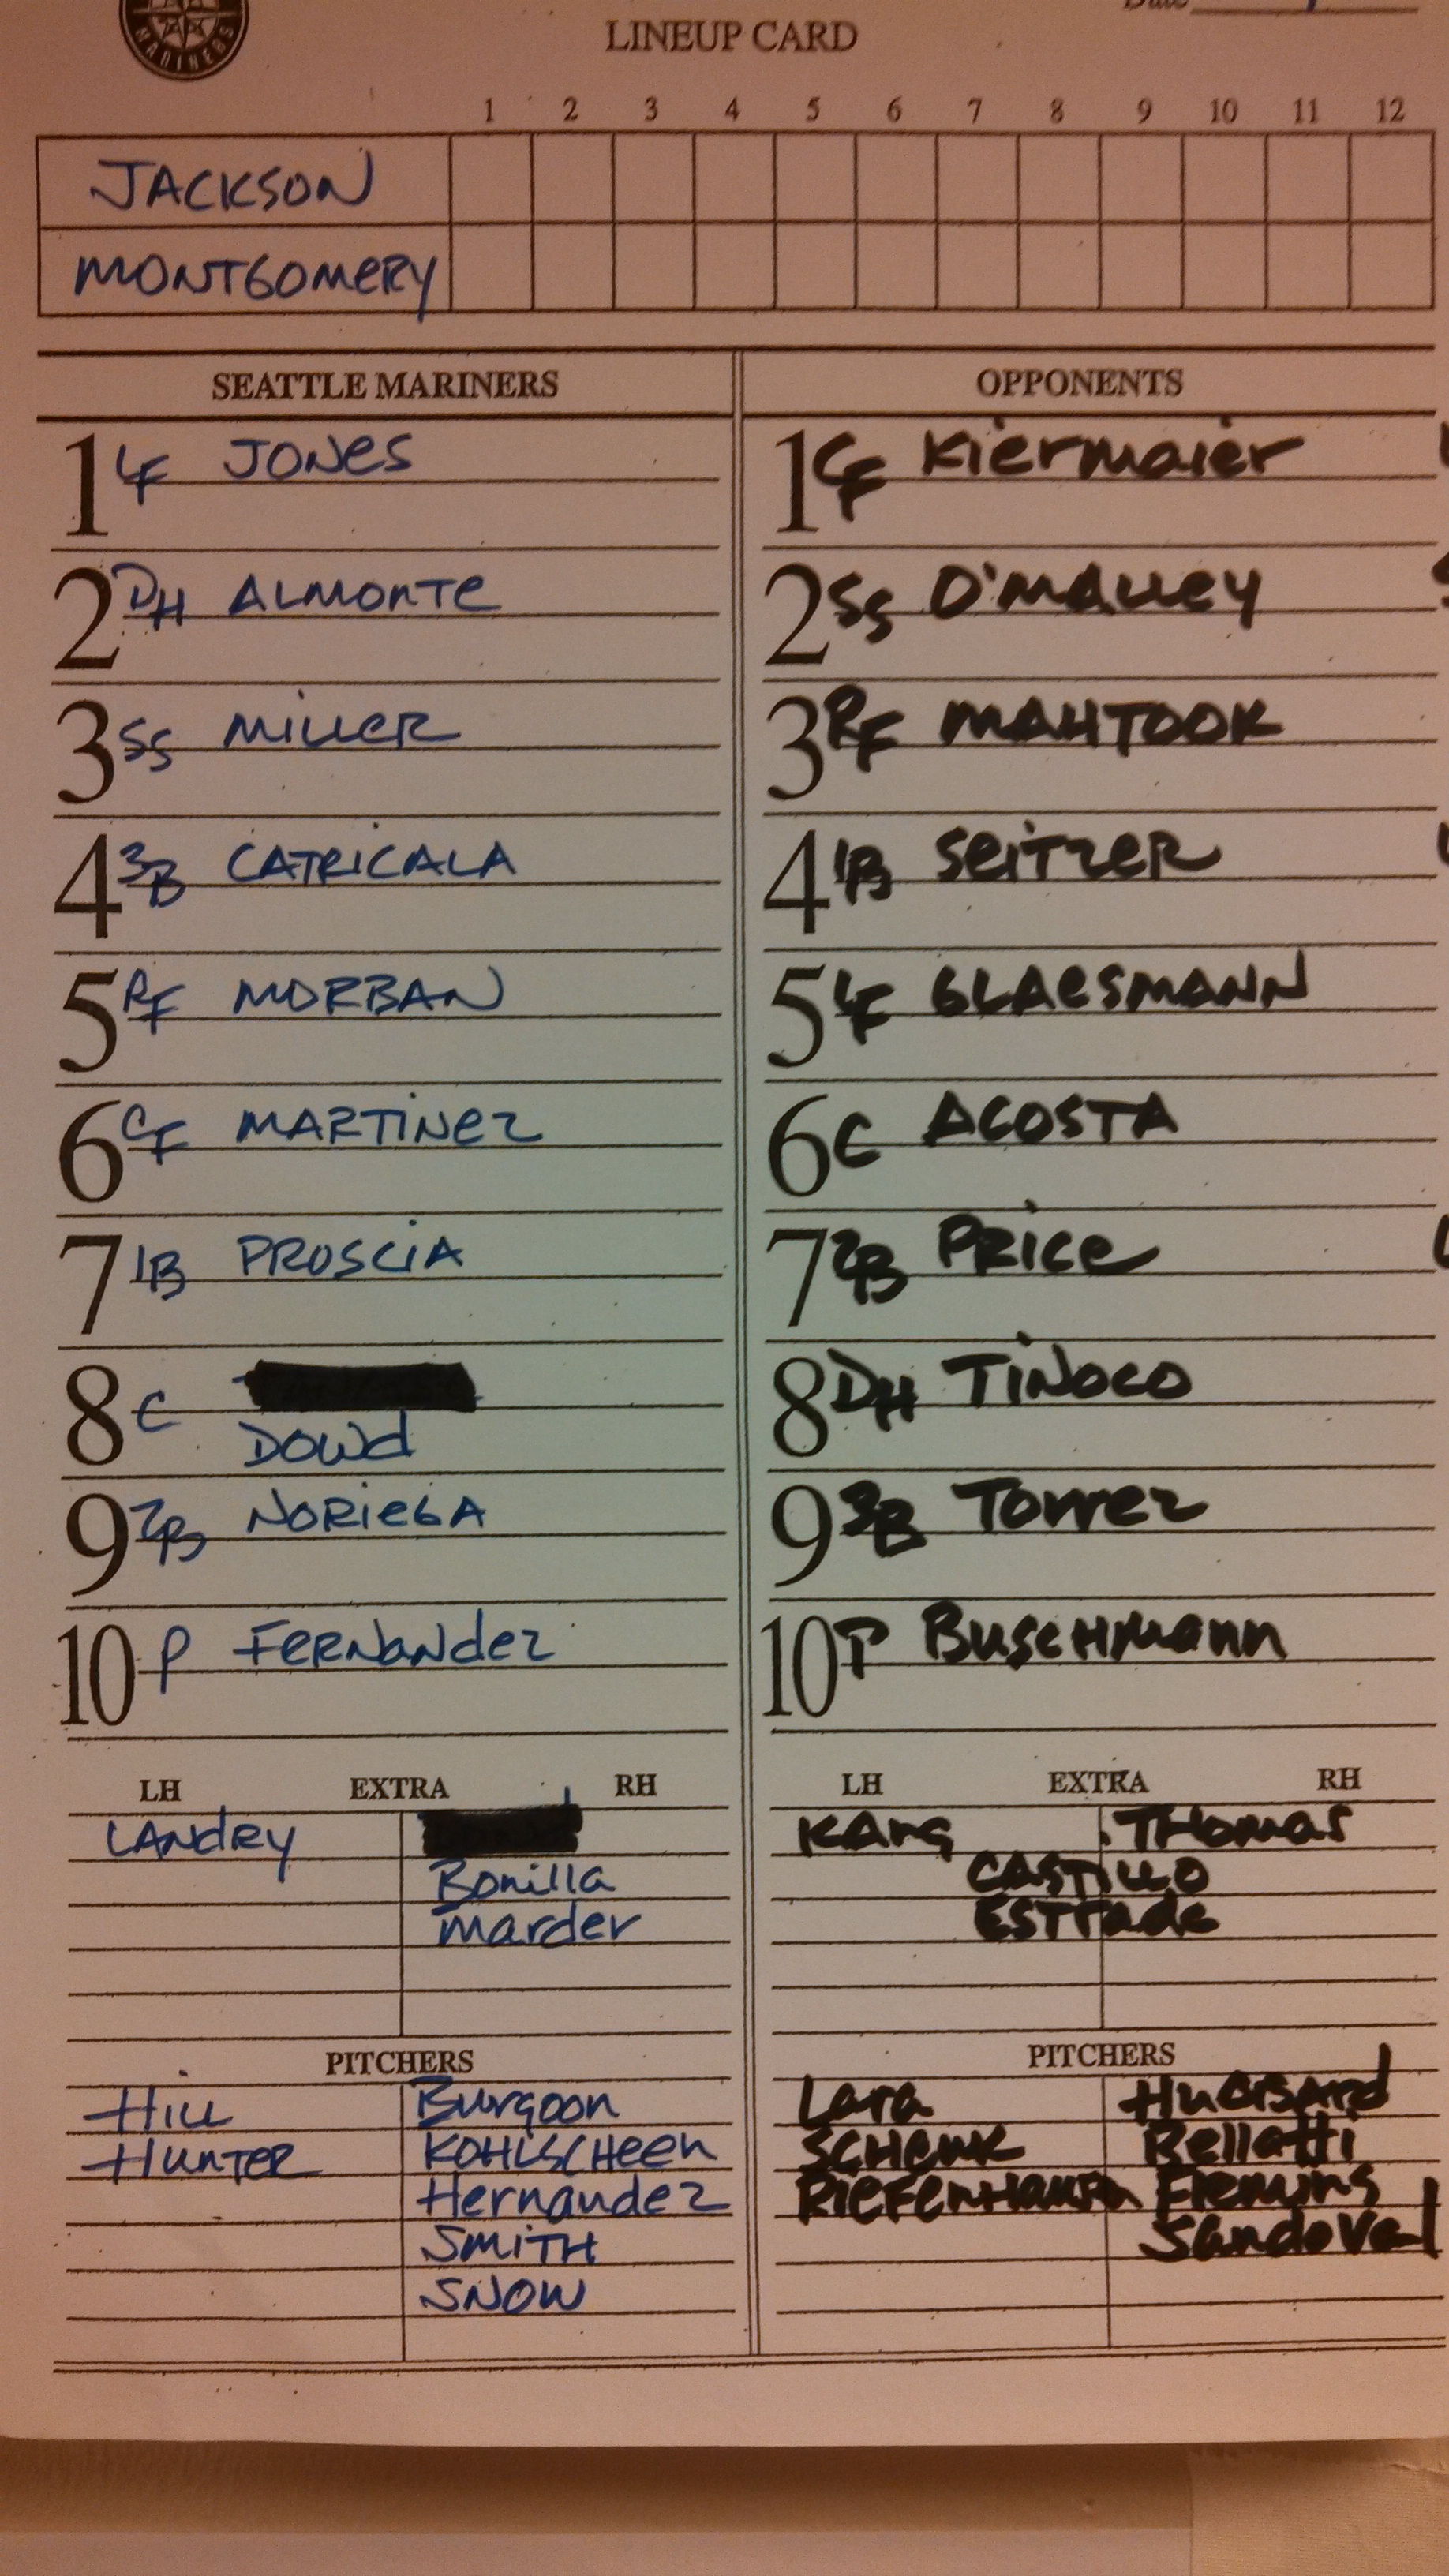 MARINERS
Date
LINEUP CARD
1 2 3 4 5 6 7 8 9 10 11 12
JACKSON
MONTGOMERY
SEATTLE MARINERS
1 LF JONES
2 DH ALMONTE
3 SS MILLER
4 3B CATRICALA
5 RF MORBAN
6 CF MARTINEZ
7 1B PROSCIA
8 C
DOWD
9 2B NORIEGA
10 P FERNANDEZ
LH EXTRA RH
LANDRY
Bonilla
Marder
PITCHERS
HILL Burgoon
HUNTER KOHLSCHEEN
Hernandez
SMITH
SNOW
OPPONENTS
1 CF Kiermaier
2 SS O'MALLEY
3 RF MAHTOOK
4 1B SEITZER
5 LF GLAESMANN
6 C ACOSTA
7 2B PRICE
8 DH TINOCO
9 3B Torrez
10 P BUSCHMANN
LH EXTRA RH
KANG THOMAS
CASTILLO
ESTRADA
PITCHERS
Lara HUBBARD
SCHENK Bellatti
Fleming
Sandoval